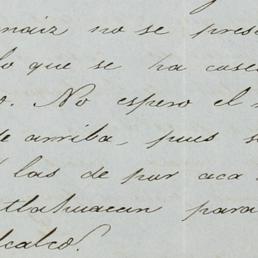 maiz no se pres
lo que se ha cose
o. No espero el
de arriba, pues s
las de por aca
tlahuacan para
calco.